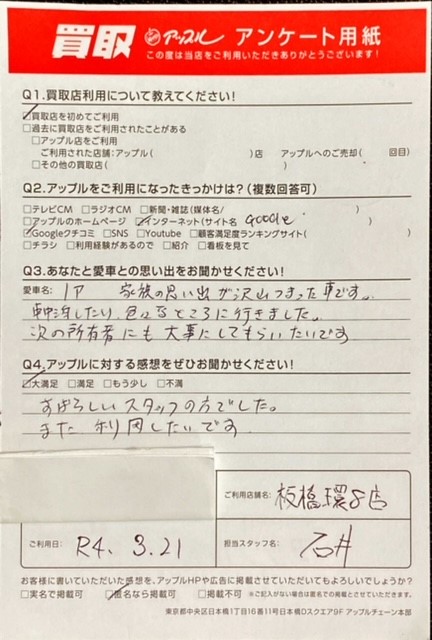 買取 アップル アンケート用紙
この度は当店をご利用いただきありがとうございます!
Q1.買取店利用について教えてください!
☑買取店を初めてご利用
□過去に買取店をご利用されたことがある
□アップル店をご利用
ご利用された店舗:アップル( )店 アップルへのご売却( 回目)
□その他の買取店( )
Q2.アップルをご利用になったきっかけは?(複数回答可)
□テレビCM □ラジオCM □新聞・雑誌(媒体名/ )
□アップルのホームページ ☑インターネット(サイト名 google )
☑Googleクチコミ □SNS □Youtube □顧客満足度ランキングサイト( )
□チラシ □利用経験があるので □紹介 □看板を見て
Q3.あなたと愛車との思い出をお聞かせください!
愛車名: 家族の思い出が沢山つまった車です。
車中泊したり、色々なところに行きました。
次の所有者にも大事にしてもらいたいです
Q4.アップルに対する感想をぜひお聞かせください!
☑大満足 □満足 □もう少し □不満
すばらしいスタッフの方でした。
また利用したいです
ご利用店舗名: 板橋環8店
ご利用日: R4. 3.21 担当スタッフ名: 石井
お客様に書いていただいた感想を、アップルHPや広告に掲載させていただいてもよろしいでしょうか?
□実名で掲載可 ☑匿名なら掲載可 □掲載不可 ※ご記入がない場合は匿名での掲載とさせていただきます。
東京都中央区日本橋1丁目16番11号日本橋Dスクエア9F アップルチェーン本部